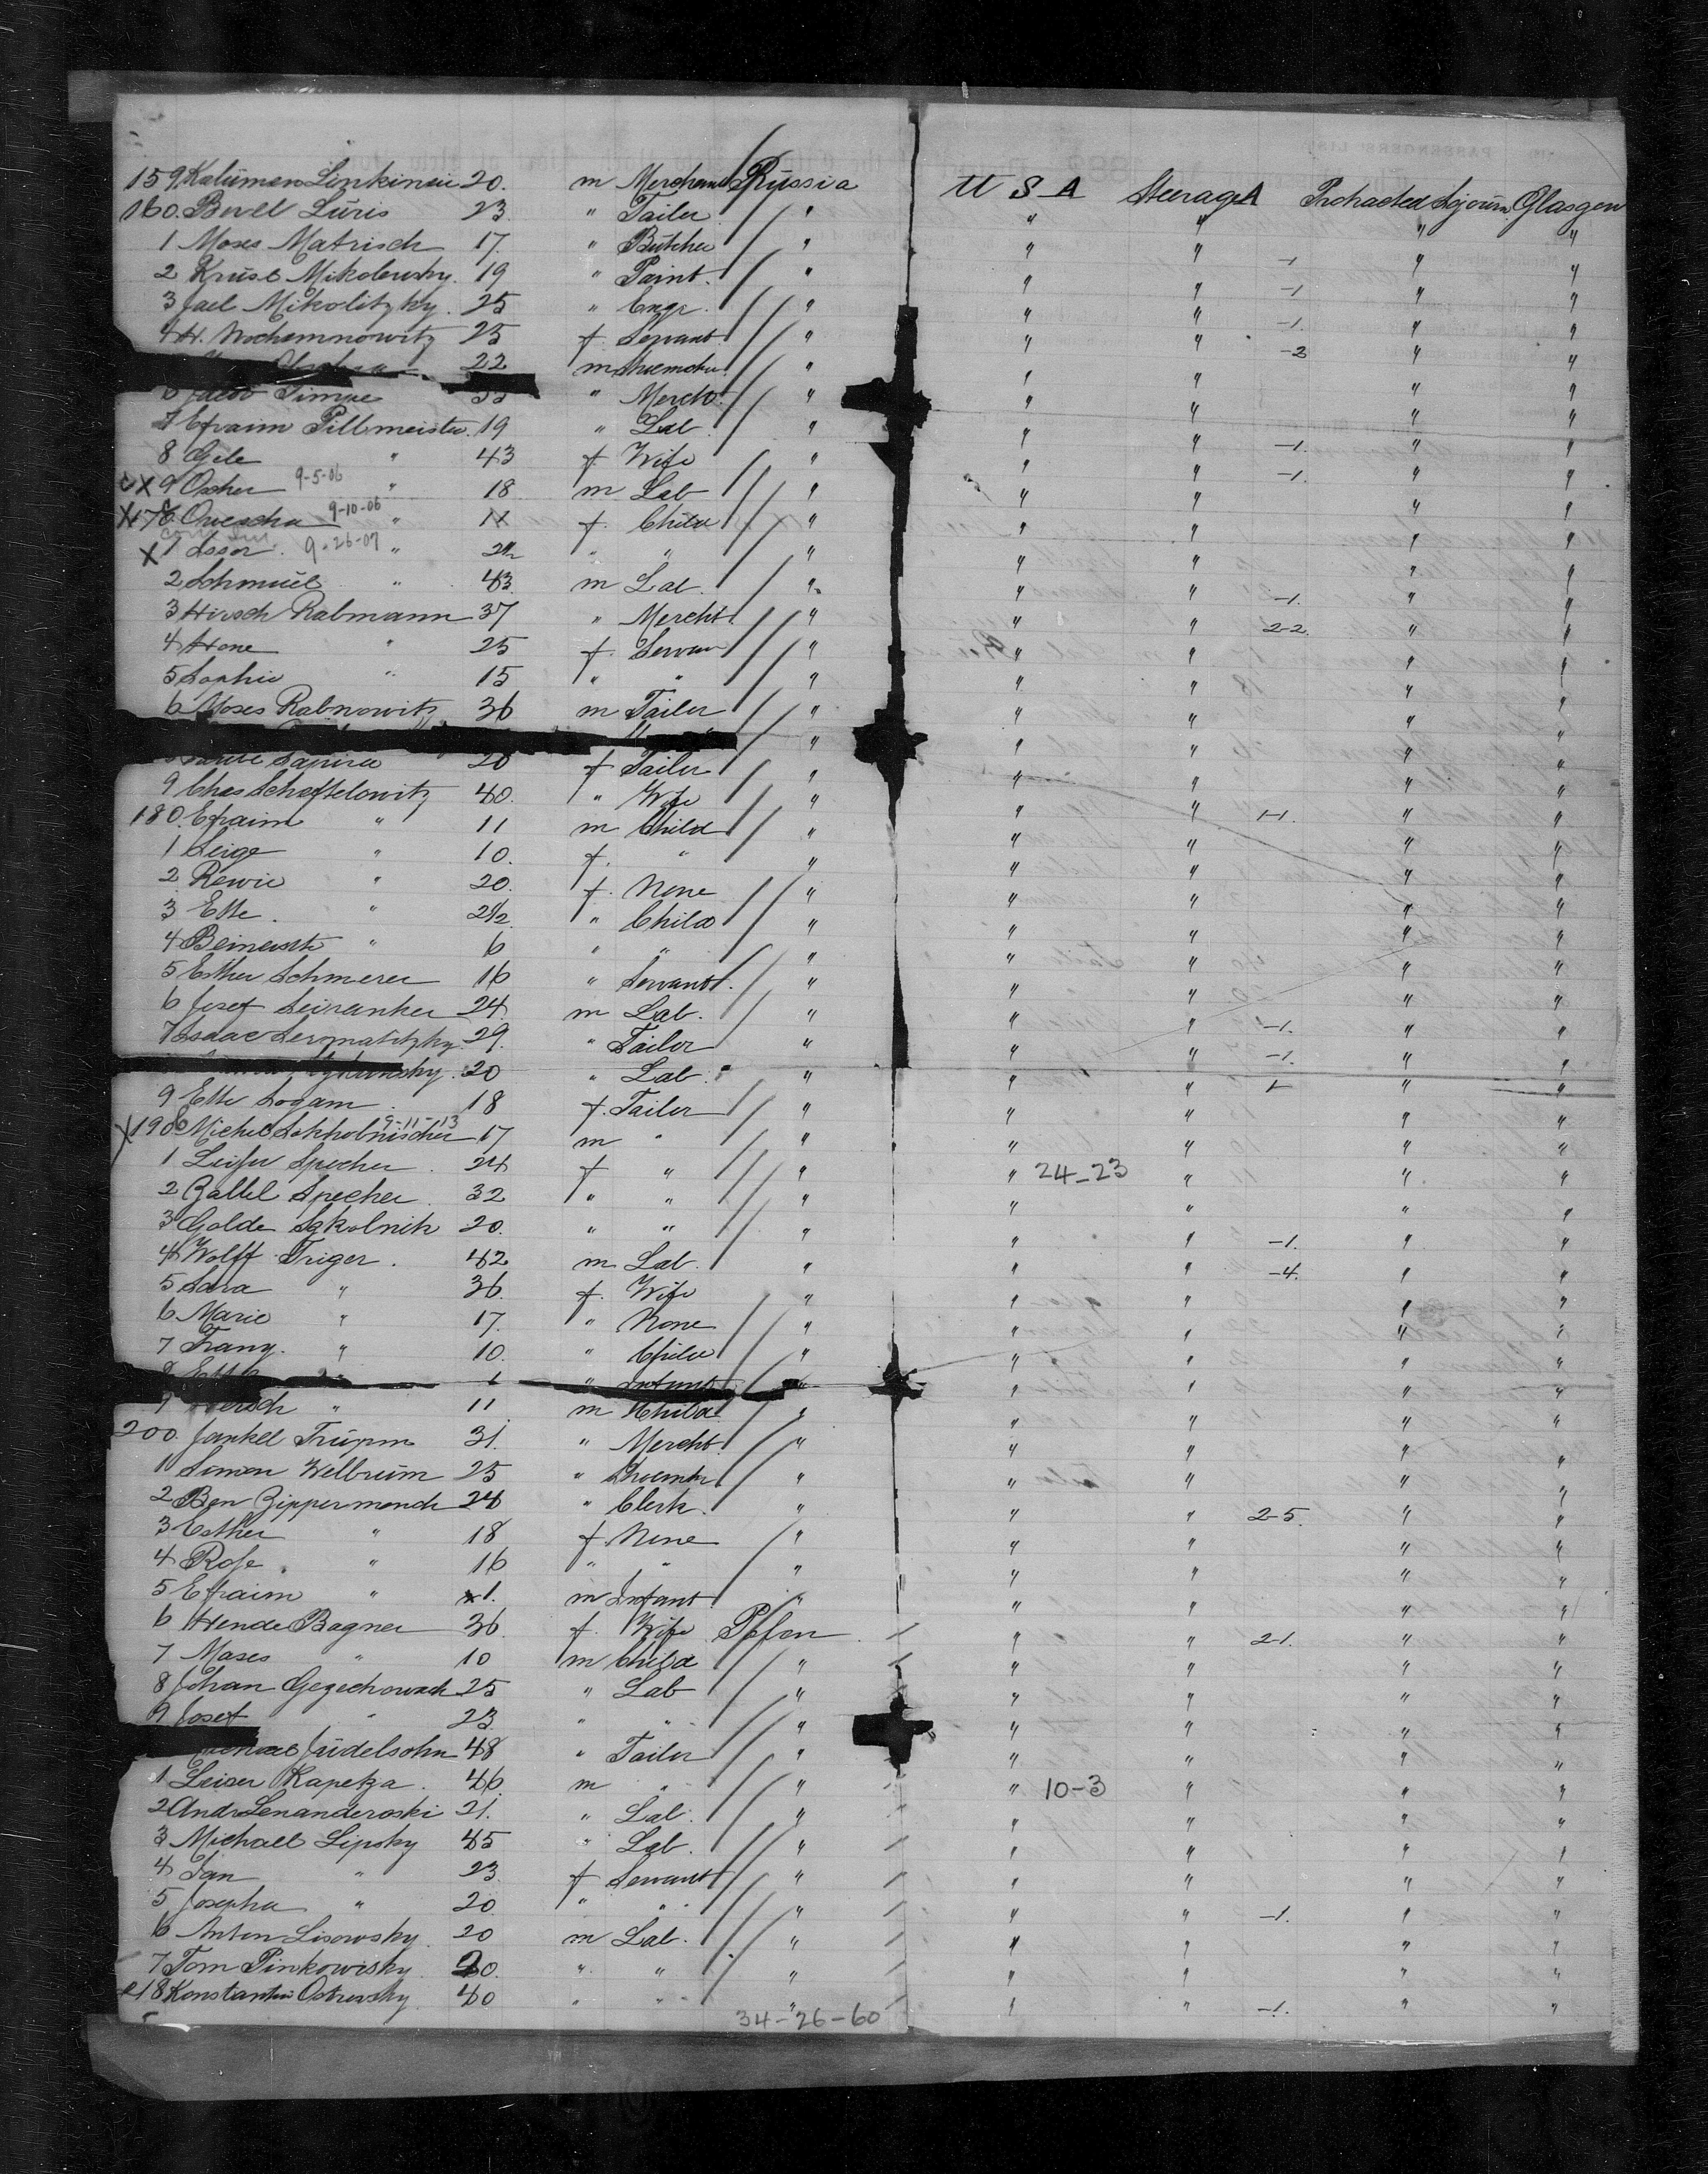 159 Kalümen Linkinsii 20. m Merchant Russia U S A Steerage A Protracted Sojourn Glasgow
160. Berel Lüris 23. " Tailor " " " " "
1 Moses Matrisch 17. " Butcher " " " -1 " "
2 Kruse Mikolewsky. 19 " Paint. " " " -1 " "
3 Jael Mikolitzky. 25 " Engr. " " " -1. " "
4 H. Nochemnowitz 25 f Servant " " " -2 " "
22 m Shoemaker " " " " "
6 Jacob Timpe 35 " Mercht. " " " " "
7 Efraim Pillmeister. 19 " Lab. " " " -1. " "
8 Gele " 43 f Wife " " " -1. " "
X 9 Oscher 9-5-06 " 18 m Lab " " " " "
X 170 Owescha 9-10-06 " 11 f. Child " " " "
X 1 Assor. 9-26-07 " 2½ " " " " " " "
2 Schmuel " 43 m Lab. " " " -1. " "
3 Hirsch Rabmann 37 " Mercht " " " 2-2. " "
4 Hone " 25 f. Servan " " " " "
5 Sophie " 15 " " " " " " "
6 Moses Rabnowitz 36 m Tailor " " " " "
" " " " "
Sapira 20 f Tailor " " " " "
9 Chas Scheftelowitz 40. " Wife " " " 1-1. " "
180. Efraim " 11 m Child " " " " "
1 Leige " 10. f. " " " " " "
2 Rewie " 20. f. None " " " " "
3 Ette. " 2½ " Child " " " " "
4 Beinersch " 6 " " " " " " "
5 Esther Schmerer 16 " Servant. " " " " "
6 Josef Seiranker 24. m Lab. " " " -1. " "
7 Isaac Sermatitzky. 29. " Tailor " " " -1. " "
20 " Lab. " " " 1- " "
9 Ette Sogam. 18 f. Tailor " " " " "
X 190 Michel Schkolnischer 9-11-13 17 m " " " " " "
1 Leifer Specher. 24 f " " " 24-23 " " "
2 Zallel Specher. 32 " " " " " " "
3 Golde Sgkolnik 20. " " " " " -1. " "
4 Wolff Triger. 42 m Lab. " " " -4. " "
5 Sara " 36. f. Wife " " " " "
6 Marie " 17. " None " " " " "
7 Frany. " 10. " Child " " " " "
1 " Infant " " " "
9 Hersch " 11 m Child " " " " "
200. Jankel Trüpm 31. " Mercht. " " " " "
1 Simon Welbrüm 25 " Shoemkr " " " " "
2 Ben Zippermench 24 " Clerk. " " " 2-5. " "
3 Esther " 18 f None " " " " "
4 Rose. " 16 " " " " " " "
5 Efraim " 1. m Infant. " " " " "
6 Hende Bagner 36. f. Wife Polen. " " 2-1. " "
7 Moses " 10 m Child " " " " "
8 Johan Gegechowsch 25 " Lab " " " " "
9 Josef " 23. " " " " " " "
Jüdelsohn 48 " Tailor " " " " "
1 Leiser Kapetza. 46. m " " " 10-3 " " "
2 Andr Lenanderoski 21. " Lab. " " " " "
3 Michael Lipsky 45 " Lab. " " " " "
4 Jan " 23 f Servant " " " " "
5 Josepha " 20 " " " " " -1. " "
6 Anton Lisowsky. 20 m Lab. " " " " "
7 Tom Pinkowisky. 20. " " " " " " "
218 Konstantin Ostrowsky. 40 " " " " " -1. " "
34-26-60